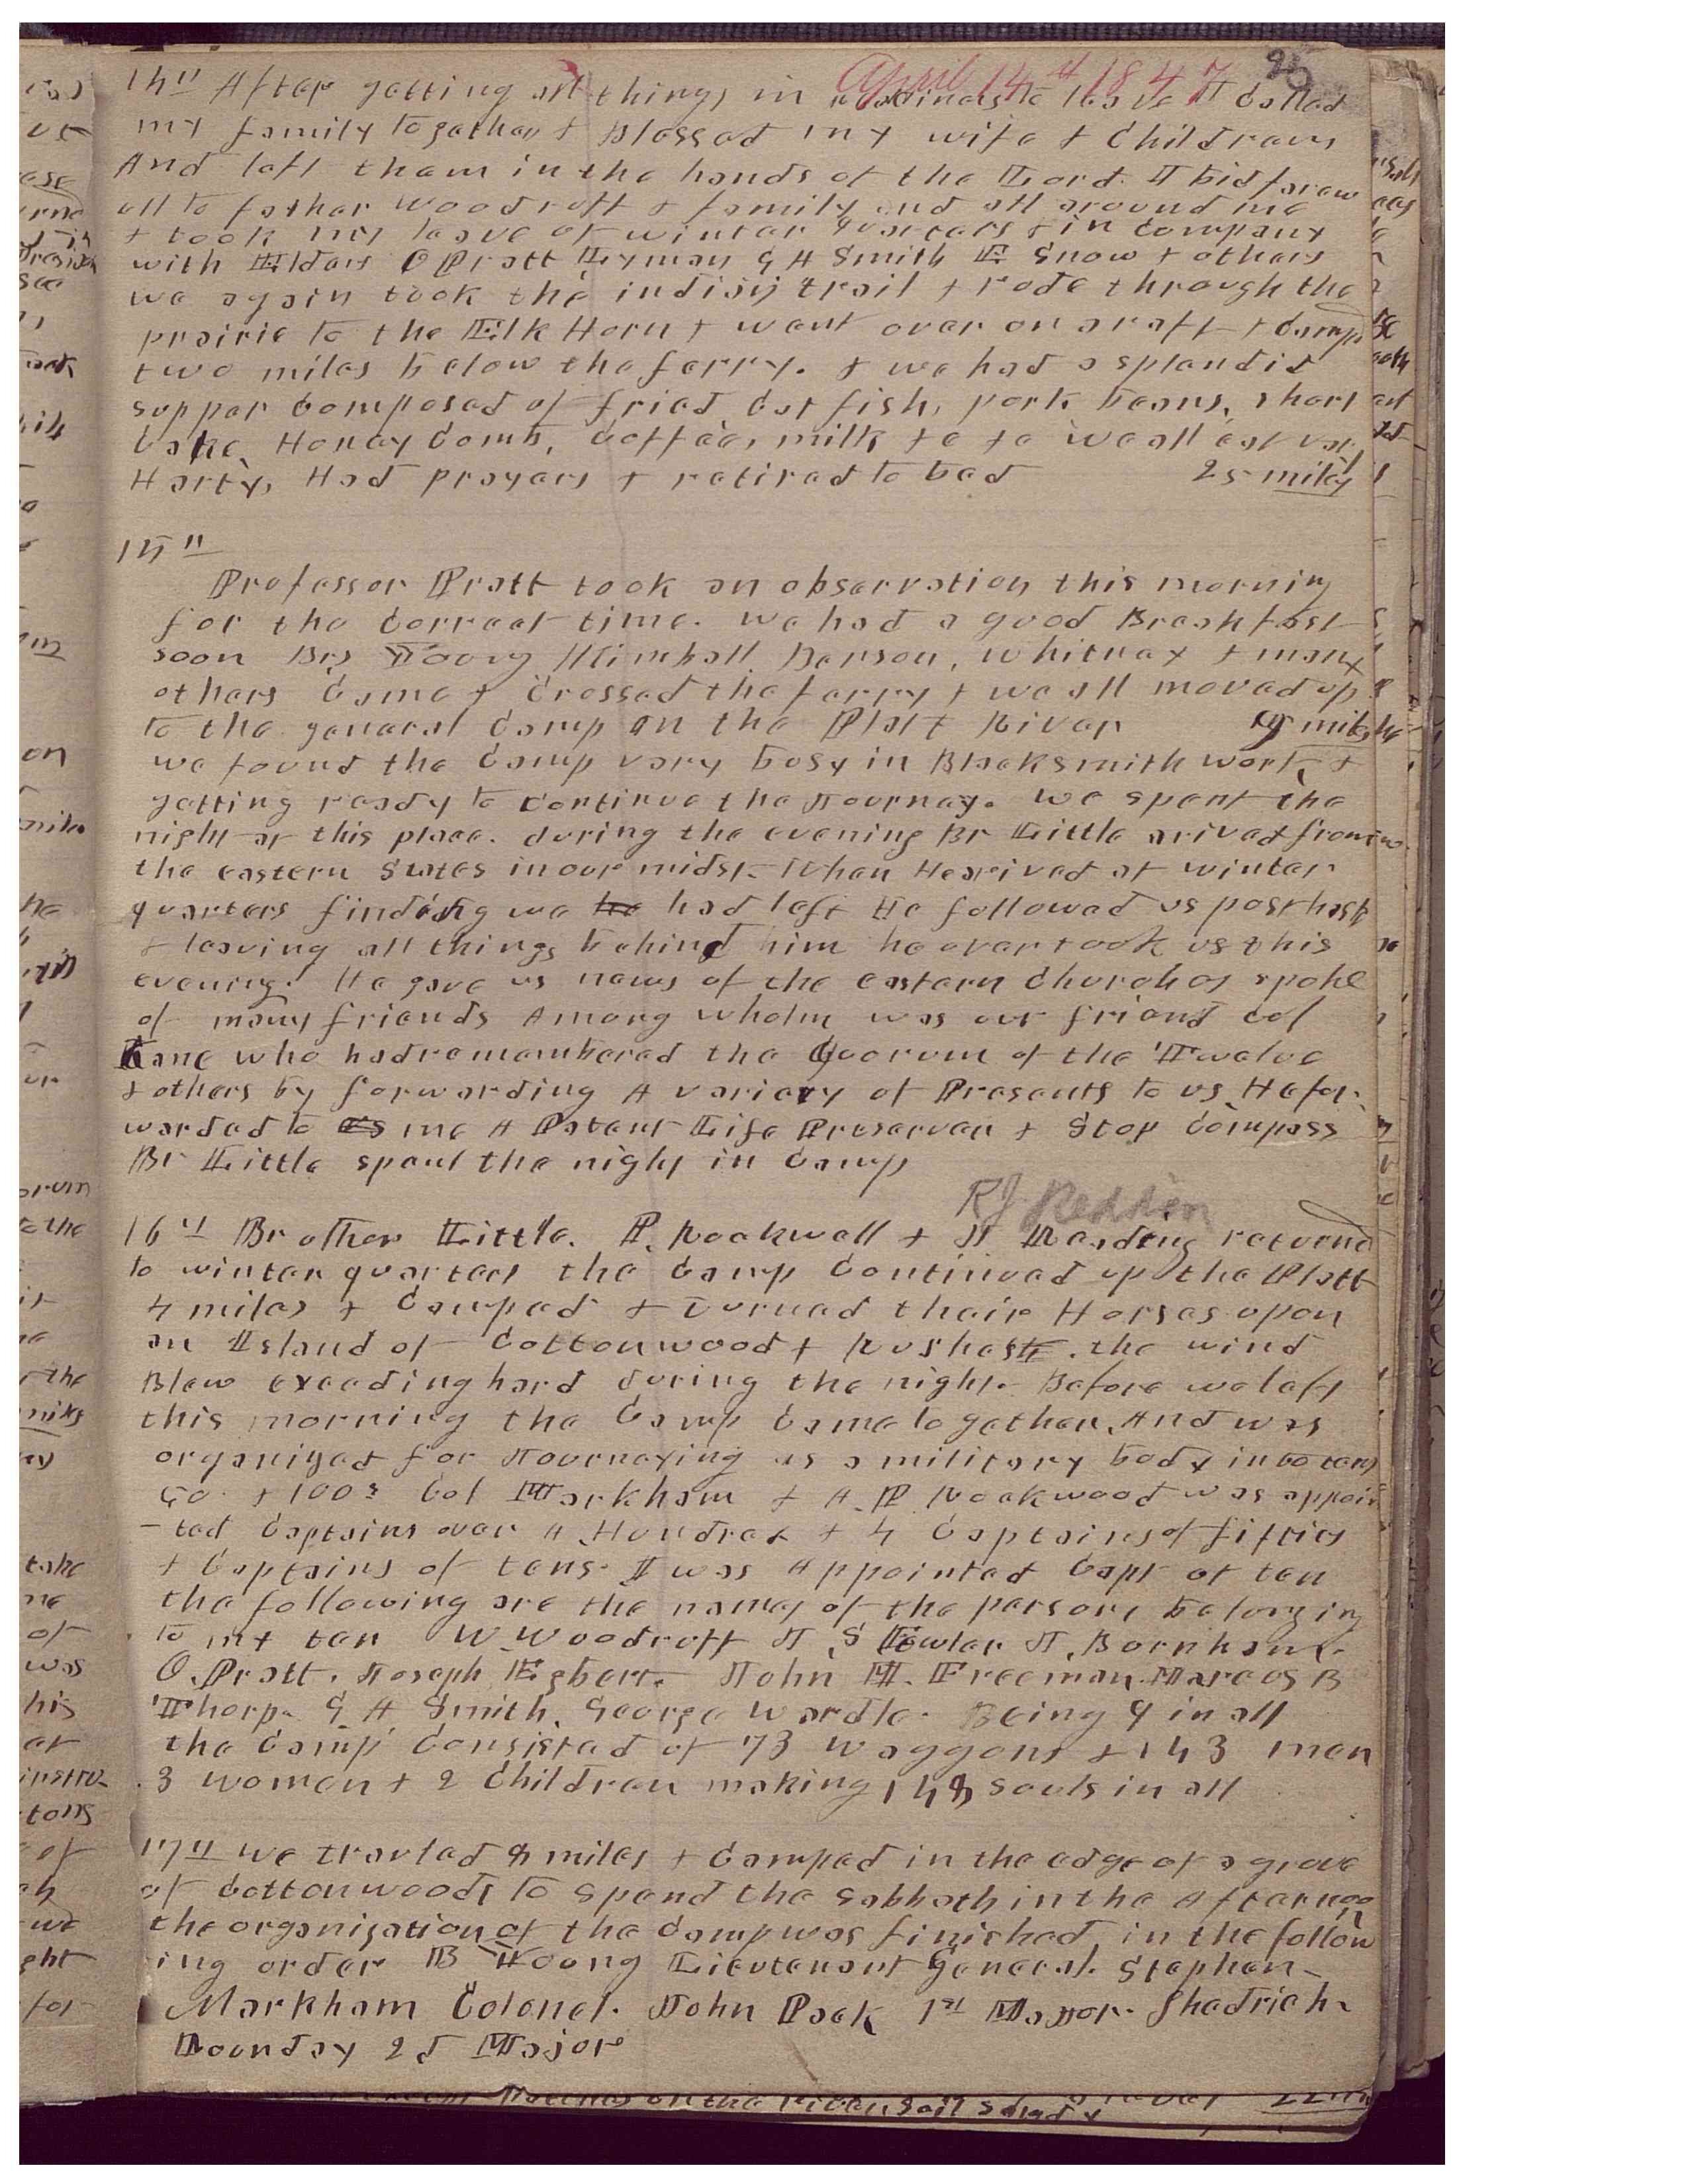 April 14th 1847
25
14th After getting all things in readiness to leave I called
my family together & Blessed my wife & Children
And left them in the hands of the Lord. I bid farew
all to father Woodruff & family and all around me
& took my leave of winter quarters & in company
with Elders O Pratt Lyman G A Smith E Snow & others
we again took the indian trail & rode through the
prairie to the Elk Horn & went over on a raft & camp
two miles below the ferry. & we had a splendid
supper composed of fried Cat fish, pork beans, short
Cake, Honey Comb, Coffee, milk &c &c we all eat very
Harty, Had prayers & retired to bed 25 miles
15th
Professor Pratt took an observation this morning
for the correct time. we had a good Breakfast
soon Brs Young Kimball Benson, Whitney & many
others came & crossed the ferry & we all moved up
to the general camp on the Platt River miles
we found the camp very busy in Blacksmith work, &
getting ready to continue the Journey. We spent the
night at this place. during the evening Br Little arived from
the eastern States in our midst When He arived at winter
quarters finding we had left He followed us post haste
& leaving all things behind him he overtook us this
evening. He gave us news of the eastern Churches spoke
of many friends Among whom was our friend Col
Kane who had remembered the Quorum of the Twelve
& others by forwarding A variety of Presents to us. He for-
warded to us me A Patent Life Preserver & Stop Compass
Br Little spent the night in camp
RJ Redden
16th Brother Little. P. Rockwell & J Redding returned
to winter quarters the camp continued up the Platt
4 miles & camped & turned their Horses upon
an Island of Cottonwood & Rushes. the wind
Blew exceding hard during the night. Before we left
this morning the camp came together And was
organized for Journeying as a military body into tens
50 & 100s Col Markham & A. P Rockwood was appoin
-ted captains over A Hundred & 4 Captains of fifties
& Captains of tens. I was Appointed Capt of ten
the following are the names of the persons belonging
to my ten W Woodruff J S Fowler J. Bornham.
O. Pratt. Joseph Egbert. John M. Freeman. Marcus B
Thorp. G A Smith, George Wardle. Being 9 in all
the camp consisted of 73 waggons & 143 men
3 women & 2 children making 148 souls in all
17th we traveled 8 miles & camped in the edge of a grove
of cottonwoods to spend the sabbath in the Afternoon
the organization of the camp was finished in the follow
ing order B Young Lieutenant General. Stephen
Markham Colonel. John Pack 1st Major. Shadrich
Roonday 2d Major